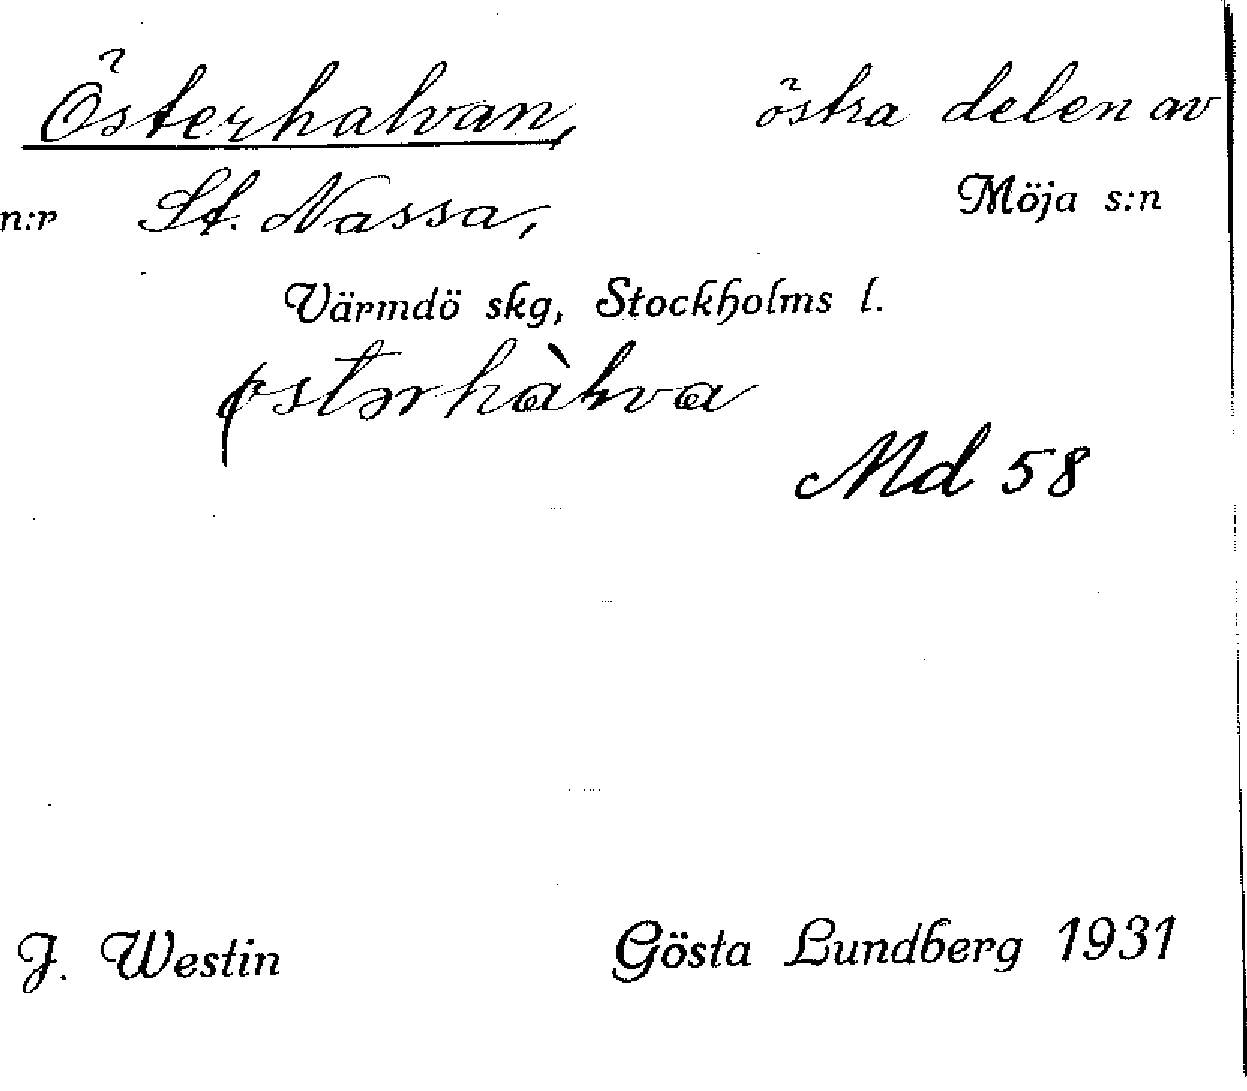 Österhalvan, östra delen av
n:r St. Nassa, Möja s:n
Värmdö skg, Stockholms l.
østərhàlva
Md 58
J. Westin Gösta Lundberg 1931